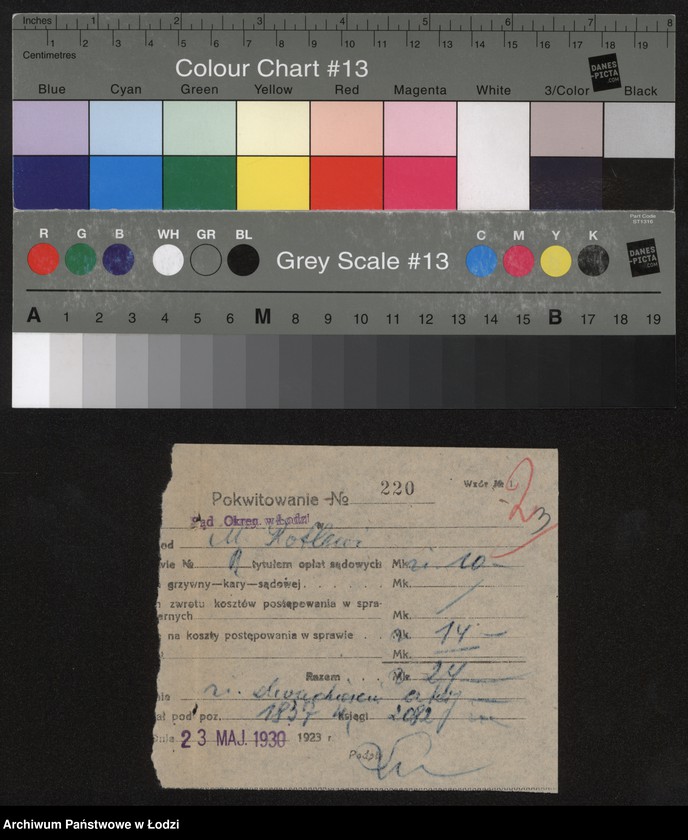 Inches 1 2 3 4 5 6 7 8
1 2 3 4 5 6 7 8 9 10 11 12 13 14 15 16 17 18 19
Centimetres
Colour Chart #13
DANES
-PICTA
.COM
Blue Cyan Green Yellow Red Magenta White 3/Color Black
R G B WH GR BL
Grey Scale #13
C M Y K
Part Code
ST1316
DANES
-PICTA
.COM
A 1 2 3 4 5 6 M 8 9 10 11 12 13 14 15 B 17 18 19
Pokwitowanie № 220
Wzór № 1
Sąd Okręg. w Łodzi
od M.
wie № tytułem opłat sądowych Mk. 10
grzywny—kary—sądowej Mk.
zwrotu kosztów postępowania w spra-
ernych Mk.
na koszty postępowania w sprawie Mk. 14
Mk.
Razem Mk. 24
nie
ał pod poz. 1837 księgi 2082
dnia 23 MAJ. 1930 1923 r.
Podpis
Archiwum Państwowe w Łodzi